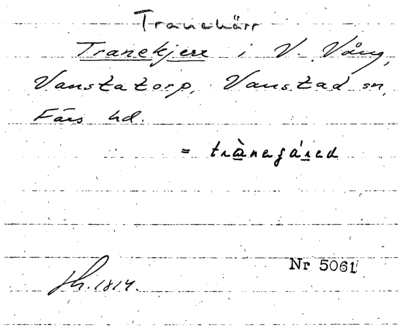 Tranekärr
Tranekjerr i V. Vång,
Vanstatorp, Vanstad sn,
Färs hd.
= trànagáred
Nr 5061
Sk. 1814.